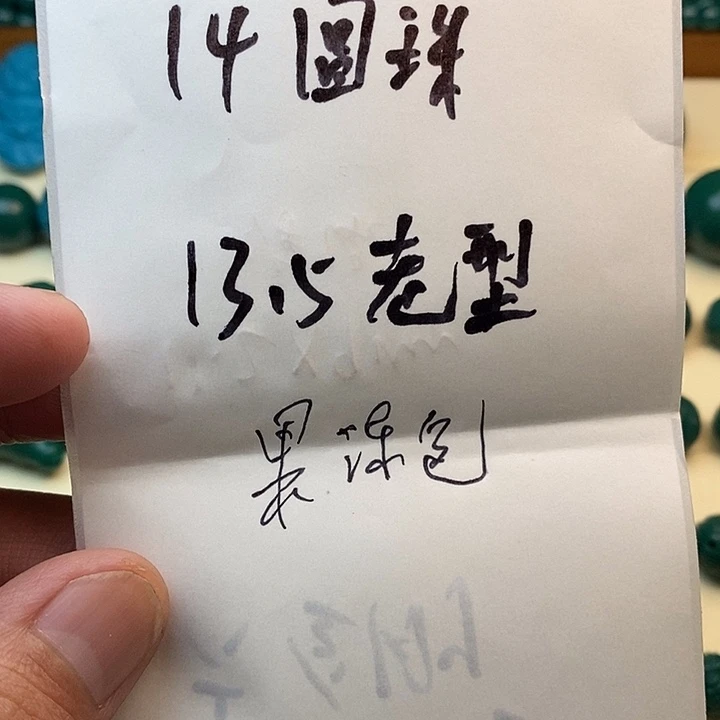 14圆珠
13.5老型
果冻包